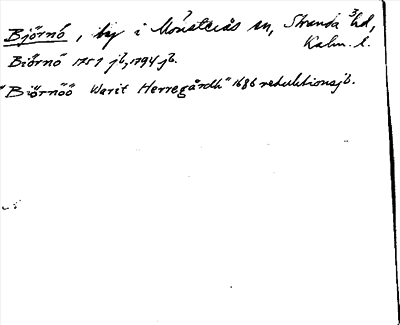 Björnö, by i Mönsterås sn, Stranda hd,
Kalm. l.
Biörnö 1751 jb, 1794 jb.
"Biörnöö Warit Herregårdh" 1686 reduktionsjb.